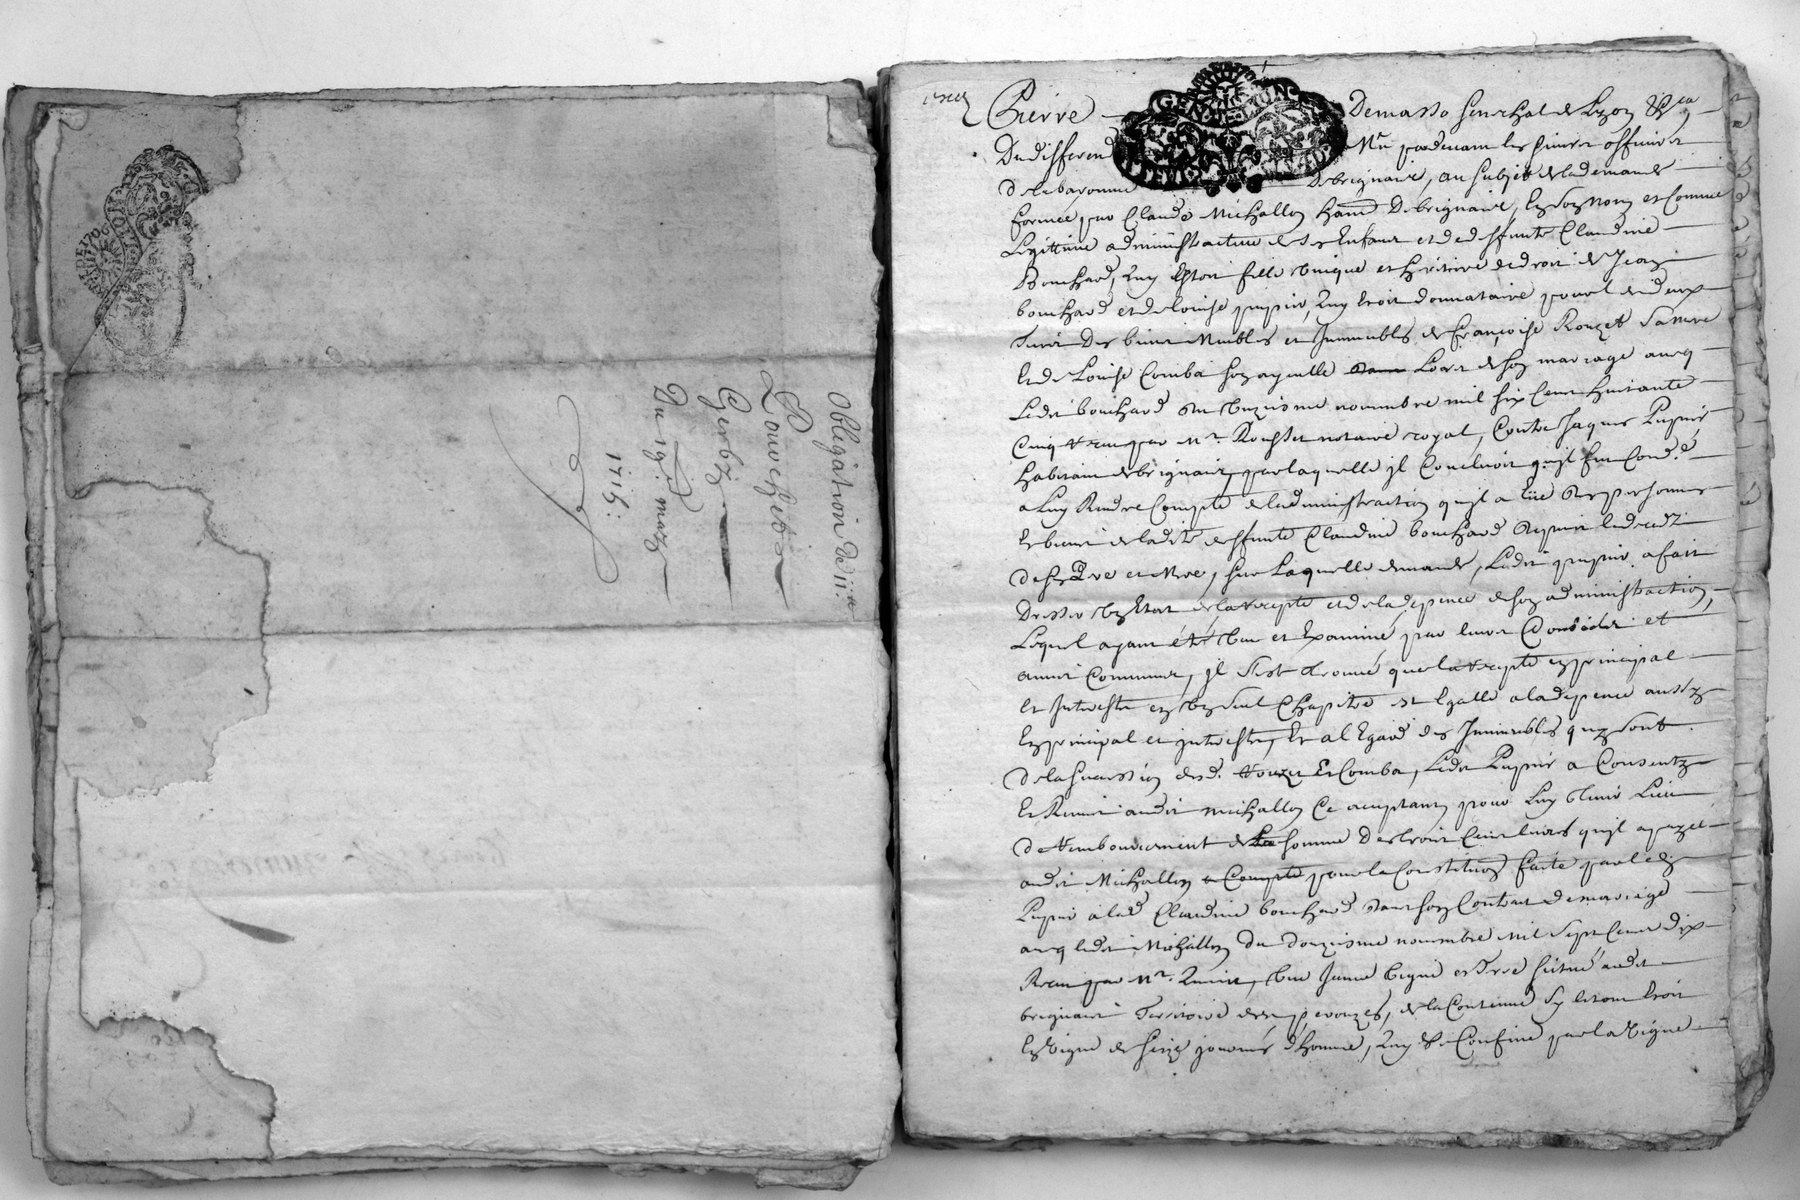 Obligation de 11 lt
Louis
Gerbez
Du 19e. mars
1716:
Pierre Demasso Senechal de Lyon &ca
Du differend Mu pardevant les sieurs officiers
de la baronnie de brignais, au subjet de la demande
formée par Claude Michallon habt. De brignais, En son nom et Comme
Legitime administrateur de ses Enfans et de deffunte Claudine
Bouchard, Quy Estoit fille Unique et heritiere de droit de Jean
bouchard et de Louise pupier, Quy Etoit donnataire pour les deux
Tiers Des biens Meubles et Immeubles de françoise Rouzet sa mere
Et de Louise Comba son ayeulle Lors de son mariage avecq
Ledit bouchard du Unzieme novembre mil six Cent huitante
Cinq receu par Mr. Rousset notaire royal, Contre Jaques Pupier
habitant de brignais, par laquelle il Concluoit qu'il fut Cond.é
a Luy Rendre Compte de l'administration qu'il a Eüe des personnes
Et biens de ladite deffunte Claudine bouchard depuis le deceds
de ses Pere et Mere, sur Laquelle demande, Ledit pupier a fait
Dresser Un Etat de la recepte et de la depence de son administration,
Lequel ayant été Veu et Examiné par leurs Conseils et
amis Communs, il s'est trouvé que la recepte en principal
et Interests en Un seul Chapitre est Egalle a la depence aussy
En principal et interests, Et al Egard des Immeubles quy sont
de la succession desd. Rouzet Et Comba, Ledit Pupier a Consenty
Et Remis audit Michallon Ce acceptant pour Luy Tenir Lieu
de rembourcement de la somme Des trois Cent livres qu'il a payé
audit Michallon a Compte pour la Constitution faite par led.
Pupier a lad. Claudine bouchard dans son Contrat de mariage
avecq ledit Michallon du douzieme novembre Mil Sept Cent Dix
Receu par Mr. Une Vigne et Terre scitué audit
brignais Territoire des de la Contenue Sçavoir
En Vigne de seize journés d'homme, Quy Se Confine par la Vigne